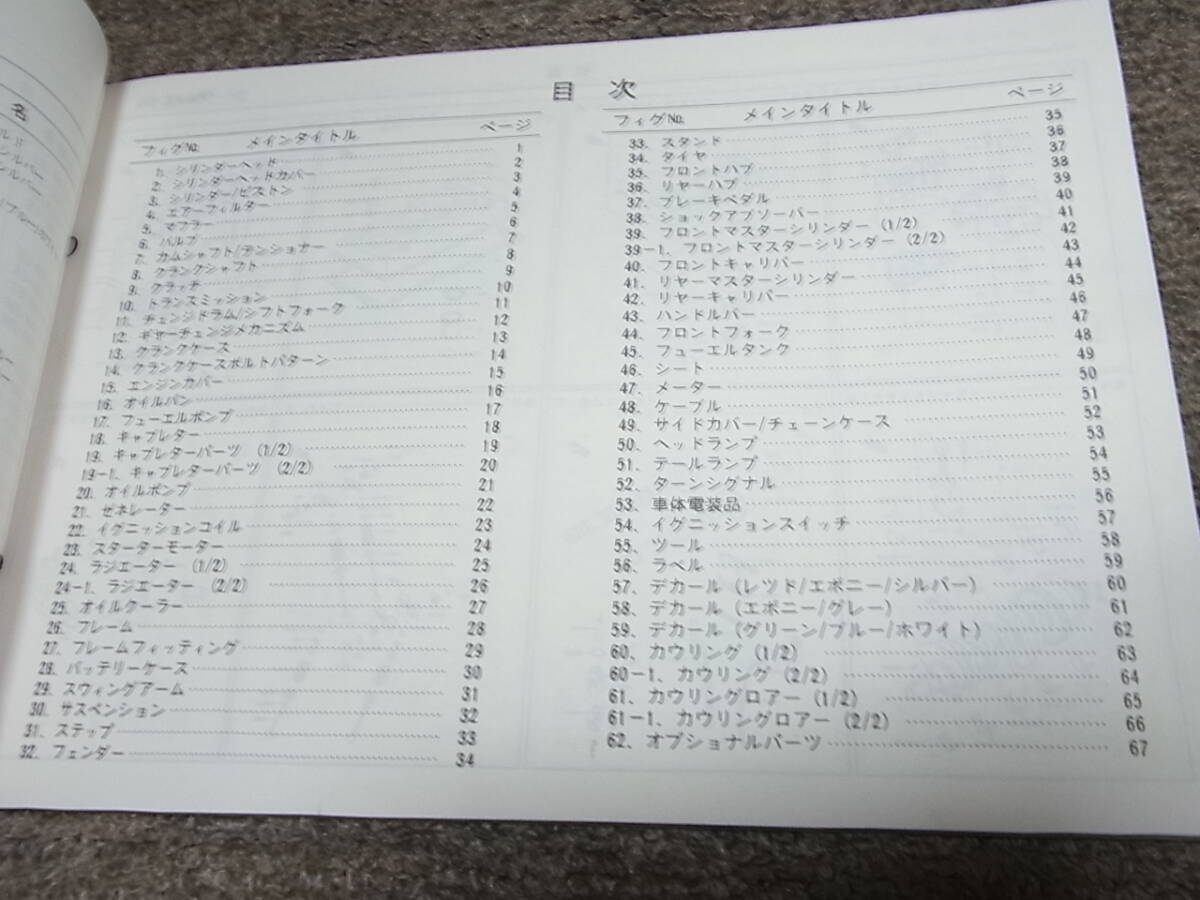 名
目次
フィグNo. メインタイトル ページ
1. シリンダーヘッド 1
2. シリンダーヘッドカバー 2
3. シリンダー/ピストン 3
4. エアーフィルター 4
5. マフラー 5
6. バルブ 6
7. カムシャフト/テンショナー 7
8. クランクシャフト 8
9. クラッチ 9
10. トランスミッション 10
11. チェンジドラム/シフトフォーク 11
12. ギヤーチェンジメカニズム 12
13. クランクケース 13
14. クランクケースボルトパターン 14
15. エンジンカバー 15
16. オイルパン 16
17. フューエルポンプ 17
18. キャブレター 18
19. キャブレターパーツ (1/2) 19
19-1. キャブレターパーツ (2/2) 20
20. オイルポンプ 21
21. ゼネレーター 22
22. イグニッションコイル 23
23. スターターモーター 24
24. ラジエーター (1/2) 25
24-1. ラジエーター (2/2) 26
25. オイルクーラー 27
26. フレーム 28
27. フレームフィッティング 29
28. バッテリーケース 30
29. スウィングアーム 31
30. サスペンション 32
31. ステップ 33
32. フェンダー 34
フィグNo. メインタイトル ページ
33. スタンド 35
34. タイヤ 36
35. フロントハブ 37
36. リヤーハブ 38
37. ブレーキペダル 39
38. ショックアブソーバー 40
39. フロントマスターシリンダー (1/2) 41
39-1. フロントマスターシリンダー (2/2) 42
40. フロントキャリパー 43
41. リヤーマスターシリンダー 44
42. リヤーキャリパー 45
43. ハンドルバー 46
44. フロントフォーク 47
45. フューエルタンク 48
46. シート 49
47. メーター 50
48. ケーブル 51
49. サイドカバー/チェーンケース 52
50. ヘッドランプ 53
51. テールランプ 54
52. ターンシグナル 55
53. 車体電装品 56
54. イグニッションスイッチ 57
55. ツール 58
56. ラベル 59
57. デカール (レツド/エボニー/シルバー) 60
58. デカール (エボニー/グレー) 61
59. デカール (グリーン/ブルー/ホワイト) 62
60. カウリング (1/2) 63
60-1. カウリング (2/2) 64
61. カウリングロアー (1/2) 65
61-1. カウリングロアー (2/2) 66
62. オプショナルパーツ 67